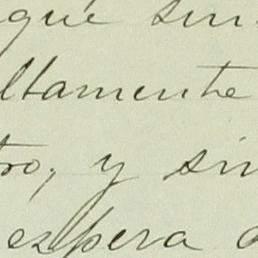 que sin
ltamente
tro, y sin
espera